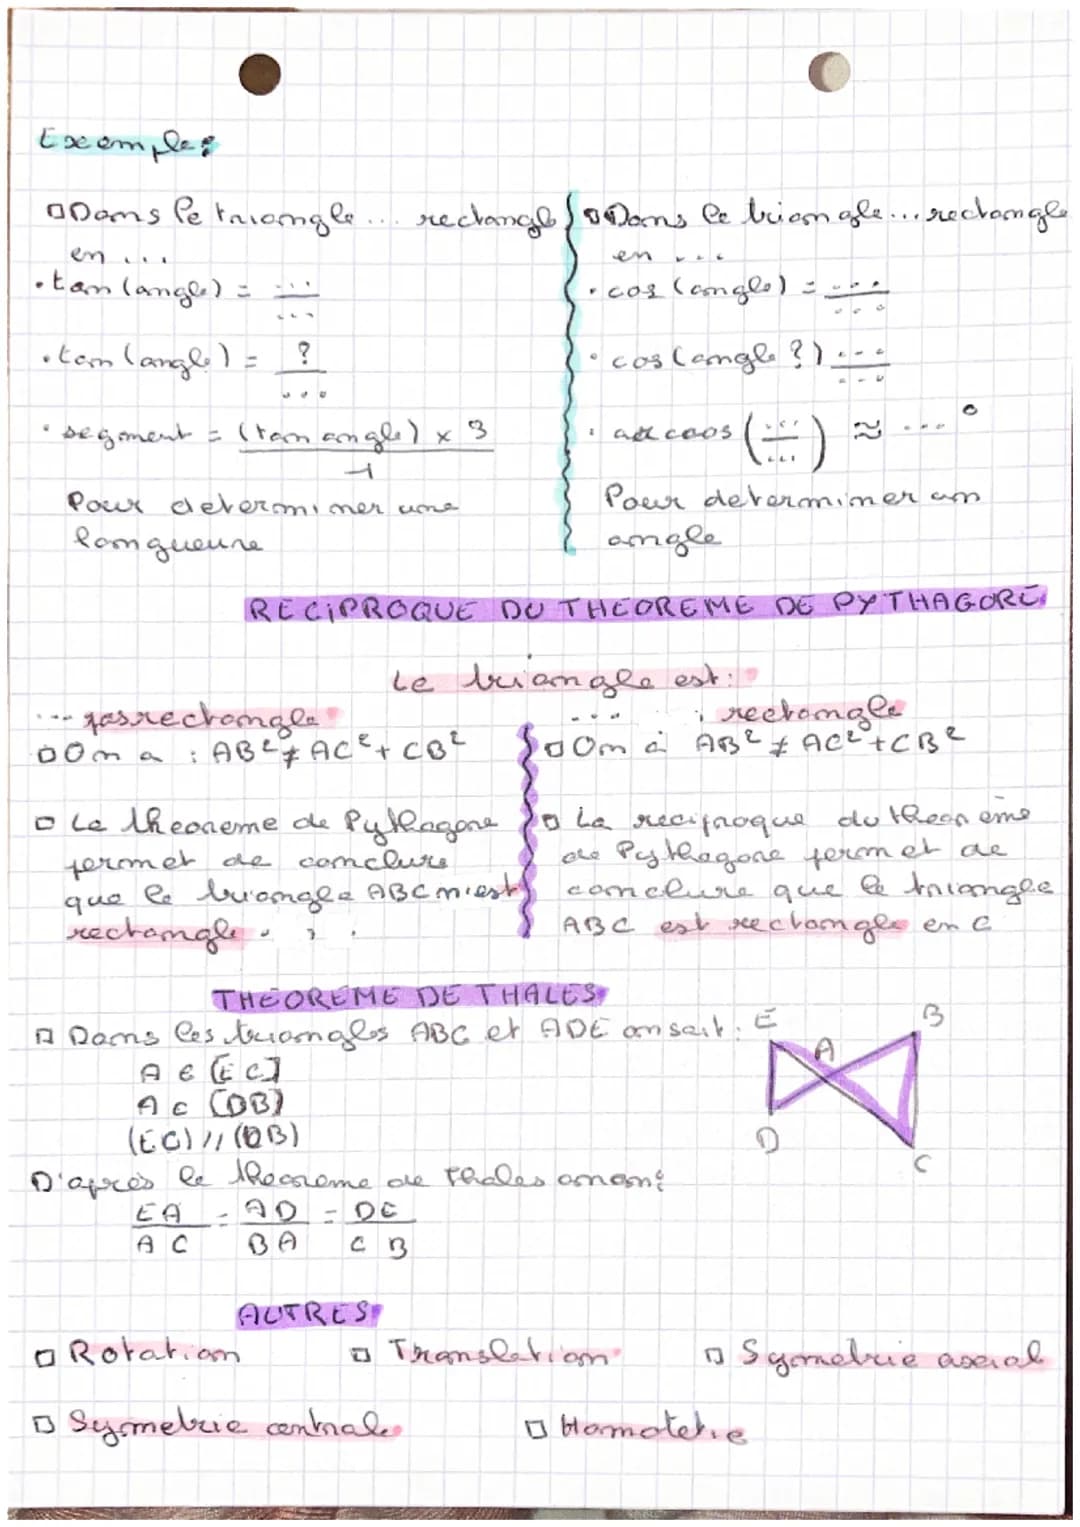 Exemples
Dans le triangle ... rectangle
en ...
• tan (angle) = ... / ...
• tan (angle) = ? / ...
• segment = (tan angle) x 3 / 1
Pour determiner une
longueure
Dans le triangle ... rectangle
en ...
• cos (angle) = ... / ...
• cos (angle ?) ... / ...
• arccoos (... / ...) ≈ ... °
Pour determiner un
angle
RECIPROQUE DU THEOREME DE PYTHAGORE
Le triangle est :
... pas rectangle
On a : AB² ≠ AC² + CB²
Le theoreme de Pythagore
permet de conclure
que le triangle ABC n'est
rectangle.
... rectangle
On à AB² ≠ AC² + CB²
La reciproque du theoreme
de Pythagore permet de
conclure que le triangle
ABC est rectangle en C
THEOREME DE THALES
Dans les triangles ABC et ADE on sait :
A ∈ [EC]
A ∈ [DB]
(EC) // (DB)
E B
A
D
C
D'après le theoreme de Thales on on :
EA / AC = AD / BA = DE / CB
AUTRES
Rotation Translation Symetrie axial
Symetrie central Homotetie